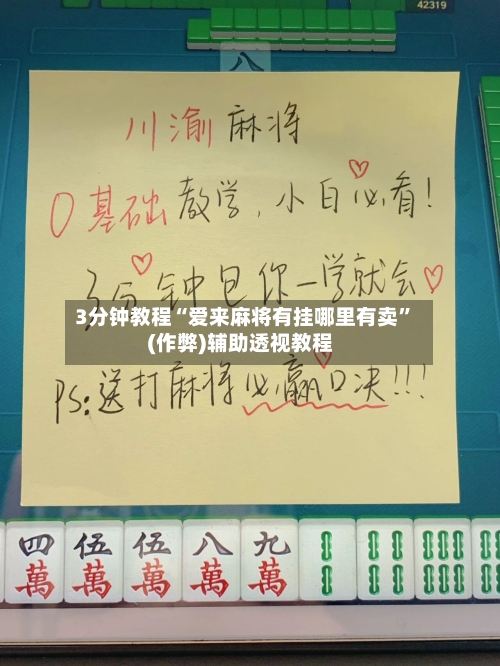 42319
八
川渝麻将
0基础教学，小白必看！
3分钟包你一学就会
3分钟教程“爱来麻将有挂哪里有卖”
(作弊)辅助透视教程
PS:送打麻将必赢口决!!!
四萬 伍萬 伍萬 八萬 九萬